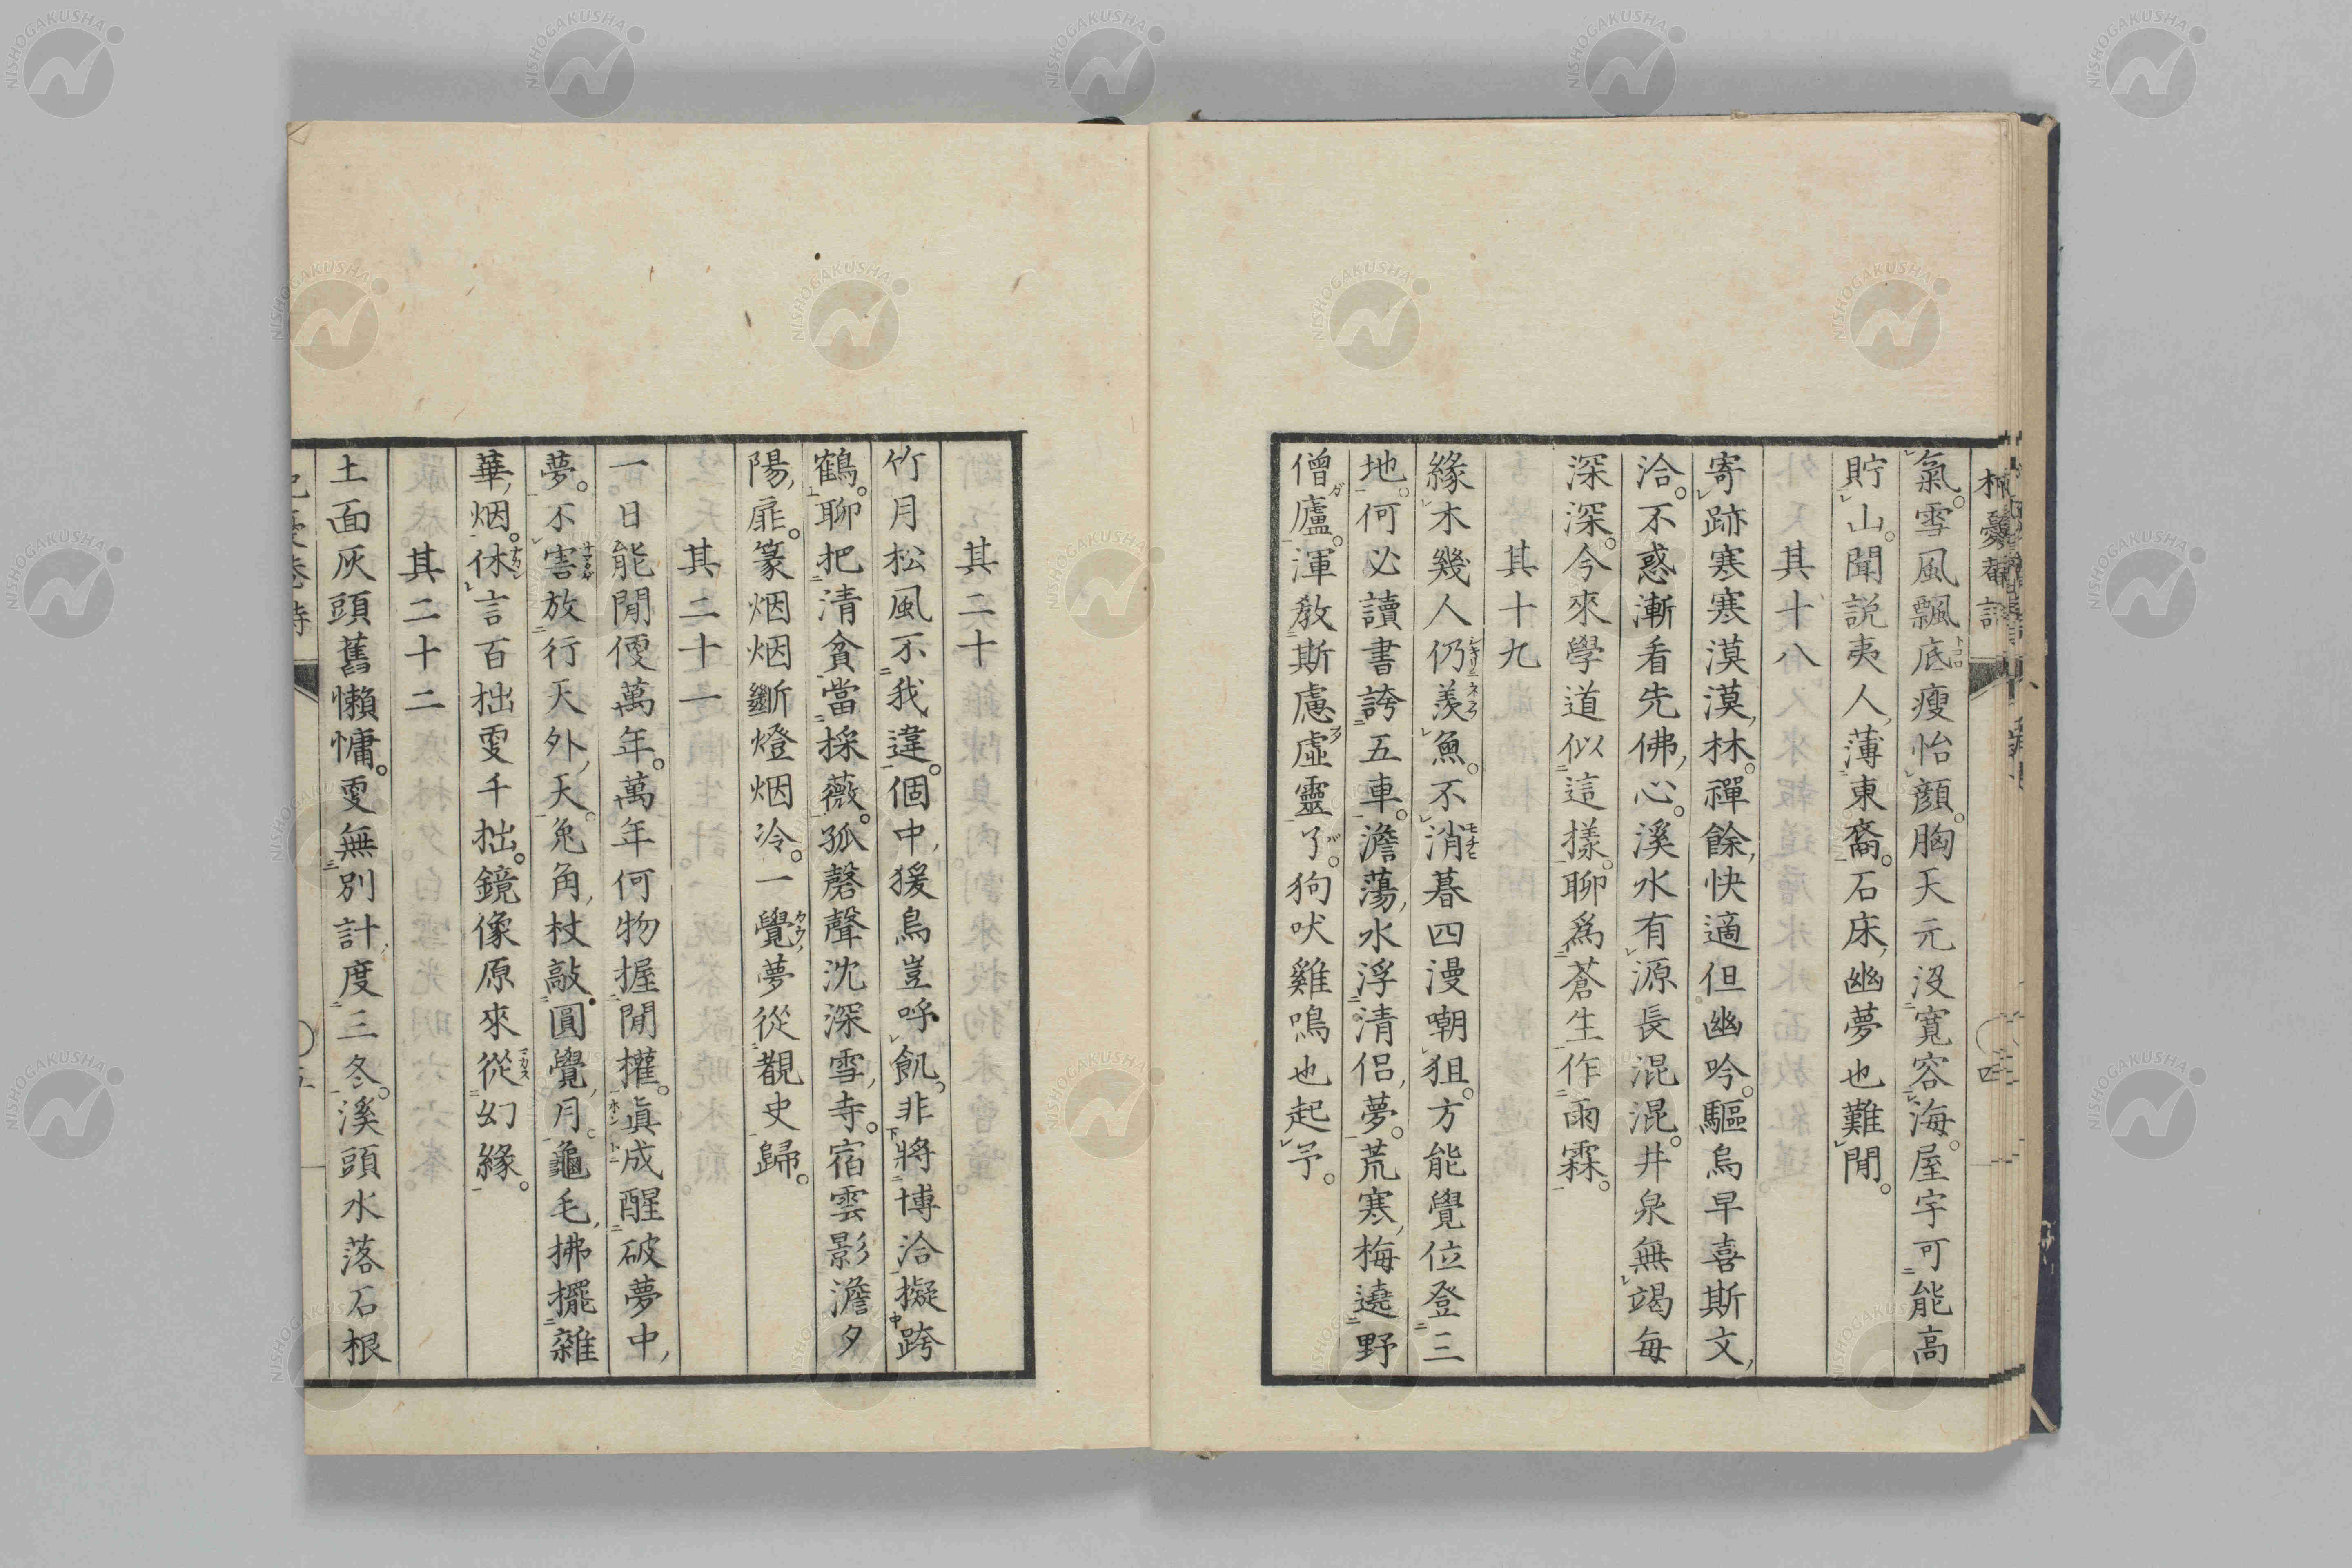 氣。雪風飄底瘦怡顔。胸天元沒寬容海。屋宇可能高
貯山。聞説夷人薄東裔。石床幽夢也難閒。
其十八
寄跡寒寒漠漠林。禪餘快適但幽吟。驅烏早喜斯文
洽。不惑漸看先佛心。溪水有源長混混。井泉無竭每
深深。今來學道似這樣。聊爲蒼生作雨霖。
其十九
緣木幾人仍羨魚。不消暮四漫嘲狙。方能覺位登三
地。何必讀書誇五車。澹蕩水浮清侶夢。荒寒梅遶野
僧廬。渾教斯慮虛靈了。狗吠雞鳴也起予。
其二十
竹月松風不我違。個中猨鳥豈呼飢。非將博洽擬跨
鶴。聊把清貧當採薇。孤磬聲沈深雪寺。宿雲影澹夕
陽扉。篆烟烟斷燈烟冷。一覺夢從觀史歸。
其二十一
一日能閒便萬年。萬年何物握閒權。眞成醒破夢中
夢。不害放行天外天。兔角杖敲圓覺月。龜毛拂擺雜
華烟。休言百拙雯千拙。鏡像原來從幻緣。
其二十二
土面灰頭舊懶慵。雯無別計度三冬。溪頭水落石根
NISHOGAKUSHA